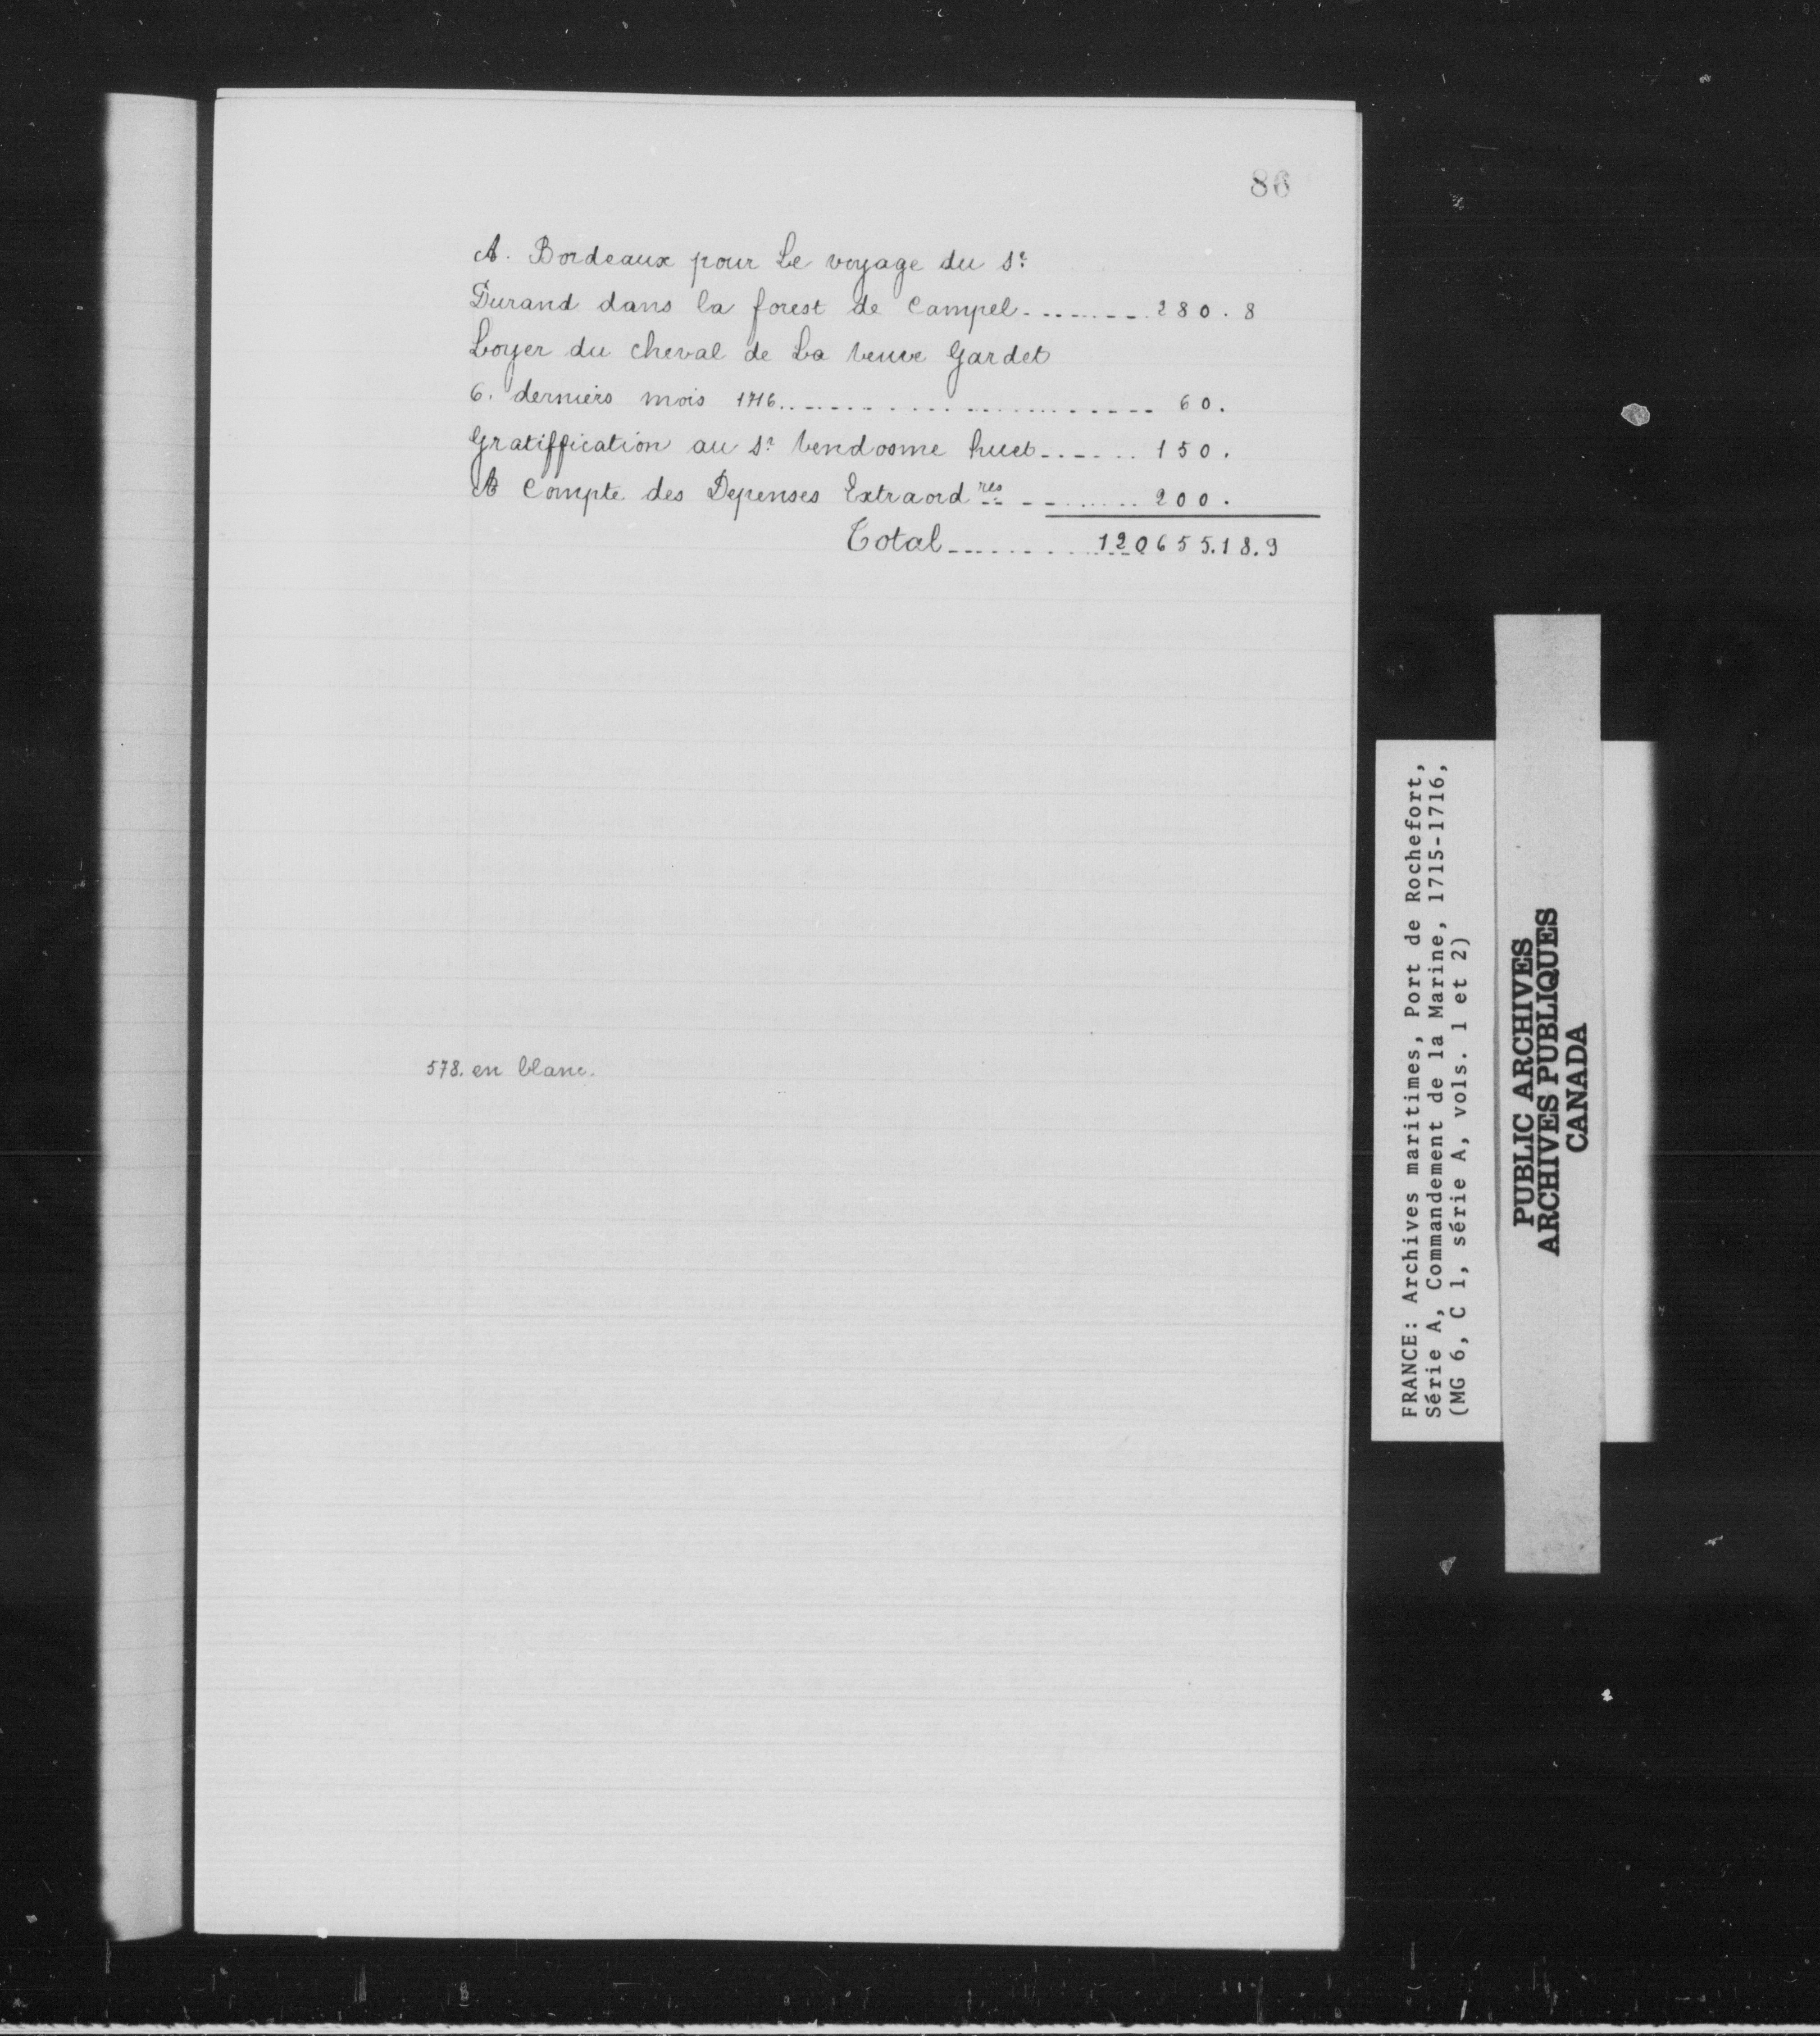 86
A. Bordeaux pour Le voyage du Sr.
Durand dans la forest de Campel ......... 280. 8
Loyer du cheval de La veuve Gardet
6. derniers mois 1716 ......... 60.
Gratiffication au Sr. Vendosme huet ....... 150.
A Compte des Depenses Extraordres ......... 200.
Total ......... 120655.18.9
578. en blanc.
FRANCE: Archives maritimes, Port de Rochefort,
Série A, Commandement de la Marine, 1715-1716,
(MG 6, C 1, série A, vols. 1 et 2)
PUBLIC ARCHIVES
ARCHIVES PUBLIQUES
CANADA